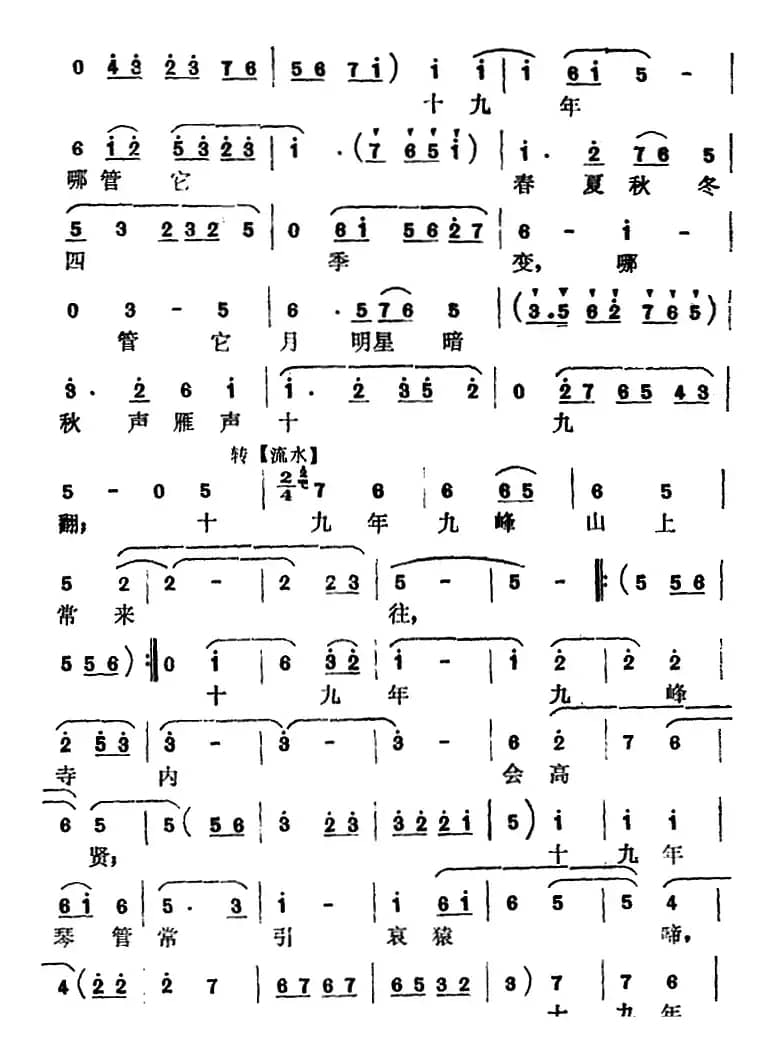 0 4̇3̇ 2̇3̇ 76 | 56 7i) i i | i 6i 5 - |
十九 年
6 i2̇ 5̇3̇2̇3̇ | i · (7 65i) | i · 2̇ 76 5 |
哪管它 春 夏秋冬
5 3 2325 | 0 6i 5627 | 6 - i - |
四 季 变，哪
0 3 - 5 | 6 · 576 5 | (3.5 62̇ 765) |
管 它 月 明星暗
3̇ · 2̇ 6 i | i · 2̇ 3̇5̇ 2̇ | 0 2̇7 65 43 |
秋 声雁声 十 九
转【流水】
5 - 0 5 | 2/4 7 6 | 6 65 | 6 5 |
翻；十 九年九峰 山上
5 2 | 2 - | 2 23 | 5 - | 5 - 𝄆 (5 56 |
常来 往，
5 56) 𝄇 0 i | 6 3̇2̇ | i - | i 2̇ | 2̇ 2̇ |
十 九 年 九 峰
2̇ 5̇3̇ | 3̇ - | 3̇ - | 3̇ - | 6 2̇ | 7 6 |
寺 内 会高
6 5 | 5 (56 | 3̇ 2̇3̇ | 3̇2̇2̇i | 5) i | i i |
贤； 十 九年
6i 6 | 5 · 3 | i - | i 6i | 6 5 | 5 4 |
琴管 常 引 哀猿 啼，
4 (2̇2̇ | 2̇ 7 | 6767 | 6532 | 3) 7 | 7 6 |
十 九年